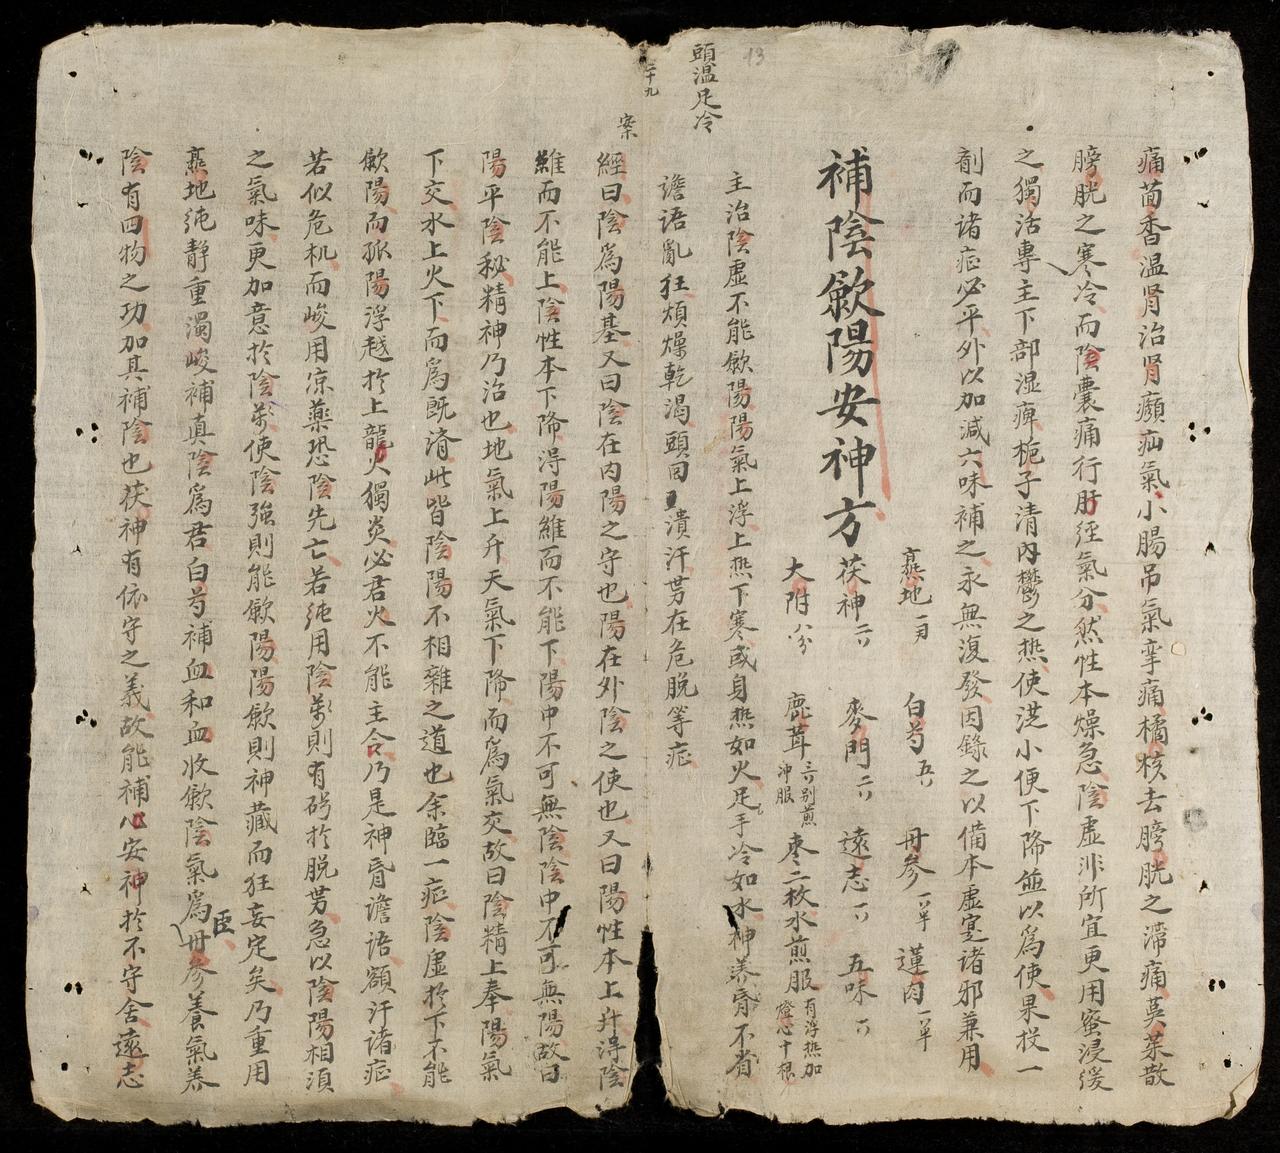 痛茴香温肾治肾癩疝氣小腸吊氣牽痛橘核去膀胱之滞痛萸茱散
膀胱之寒冷而陰囊痛行肝経氣分然性本燥急陰虚非所宜更用蜜浸緩
之獨活專主下部湿痺栀子清内鬱之热使洗小便下降並以為使果投一
劑而诸症必平外以加減六味補之永無復發因錄之以備本虚寔诸邪兼用
頭温足冷
補陰歛陽安神方
熹地一两 白芍五 丹參一 蓮肉一
茯神二 麥門二 遠志一 五味
大附八分 鹿茸三别煎冲服 棗二枚水煎服有浮热加燈心十根
主治陰虚不能歛陽陽氣上浮上热下寒或身热如火足手冷如水神养昏不省
谵语亂狂煩燥乾渴頭回潰汗势在危脱等症
二十九
案
經曰陰為陽基又曰陰在内陽之守也陽在外陰之使也又曰陽性本上升淂陰
維而不能上陰性本下降淂陽維而不能下陽中不可無陰陰中不可無陽故曰
陽平陰秘精神乃治也地氣上升天氣下降而為氣交故曰陰精上奉陽氣
下交水上火下而為既済此皆陰陽不相雜之道也余臨一症陰虚於下不能
歛陽而孤陽浮越於上龍火獨炎必君火不能主令乃是神昏谵语額汗诸症
若似危机而峻用凉藥恐陰先亡若纯用陰药則有碍於脱势急以陰陽相須
之氣味更加意於陰药使陰強則能歛陽陽歛則神藏而狂妄定矣乃重用
熹地纯静重濁峻補真陰為君白芍補血和血收歛陰氣為臣丹參養氣养
陰有四物之功加其補陰也茯神有依守之義故能補心安神於不守舍遠志